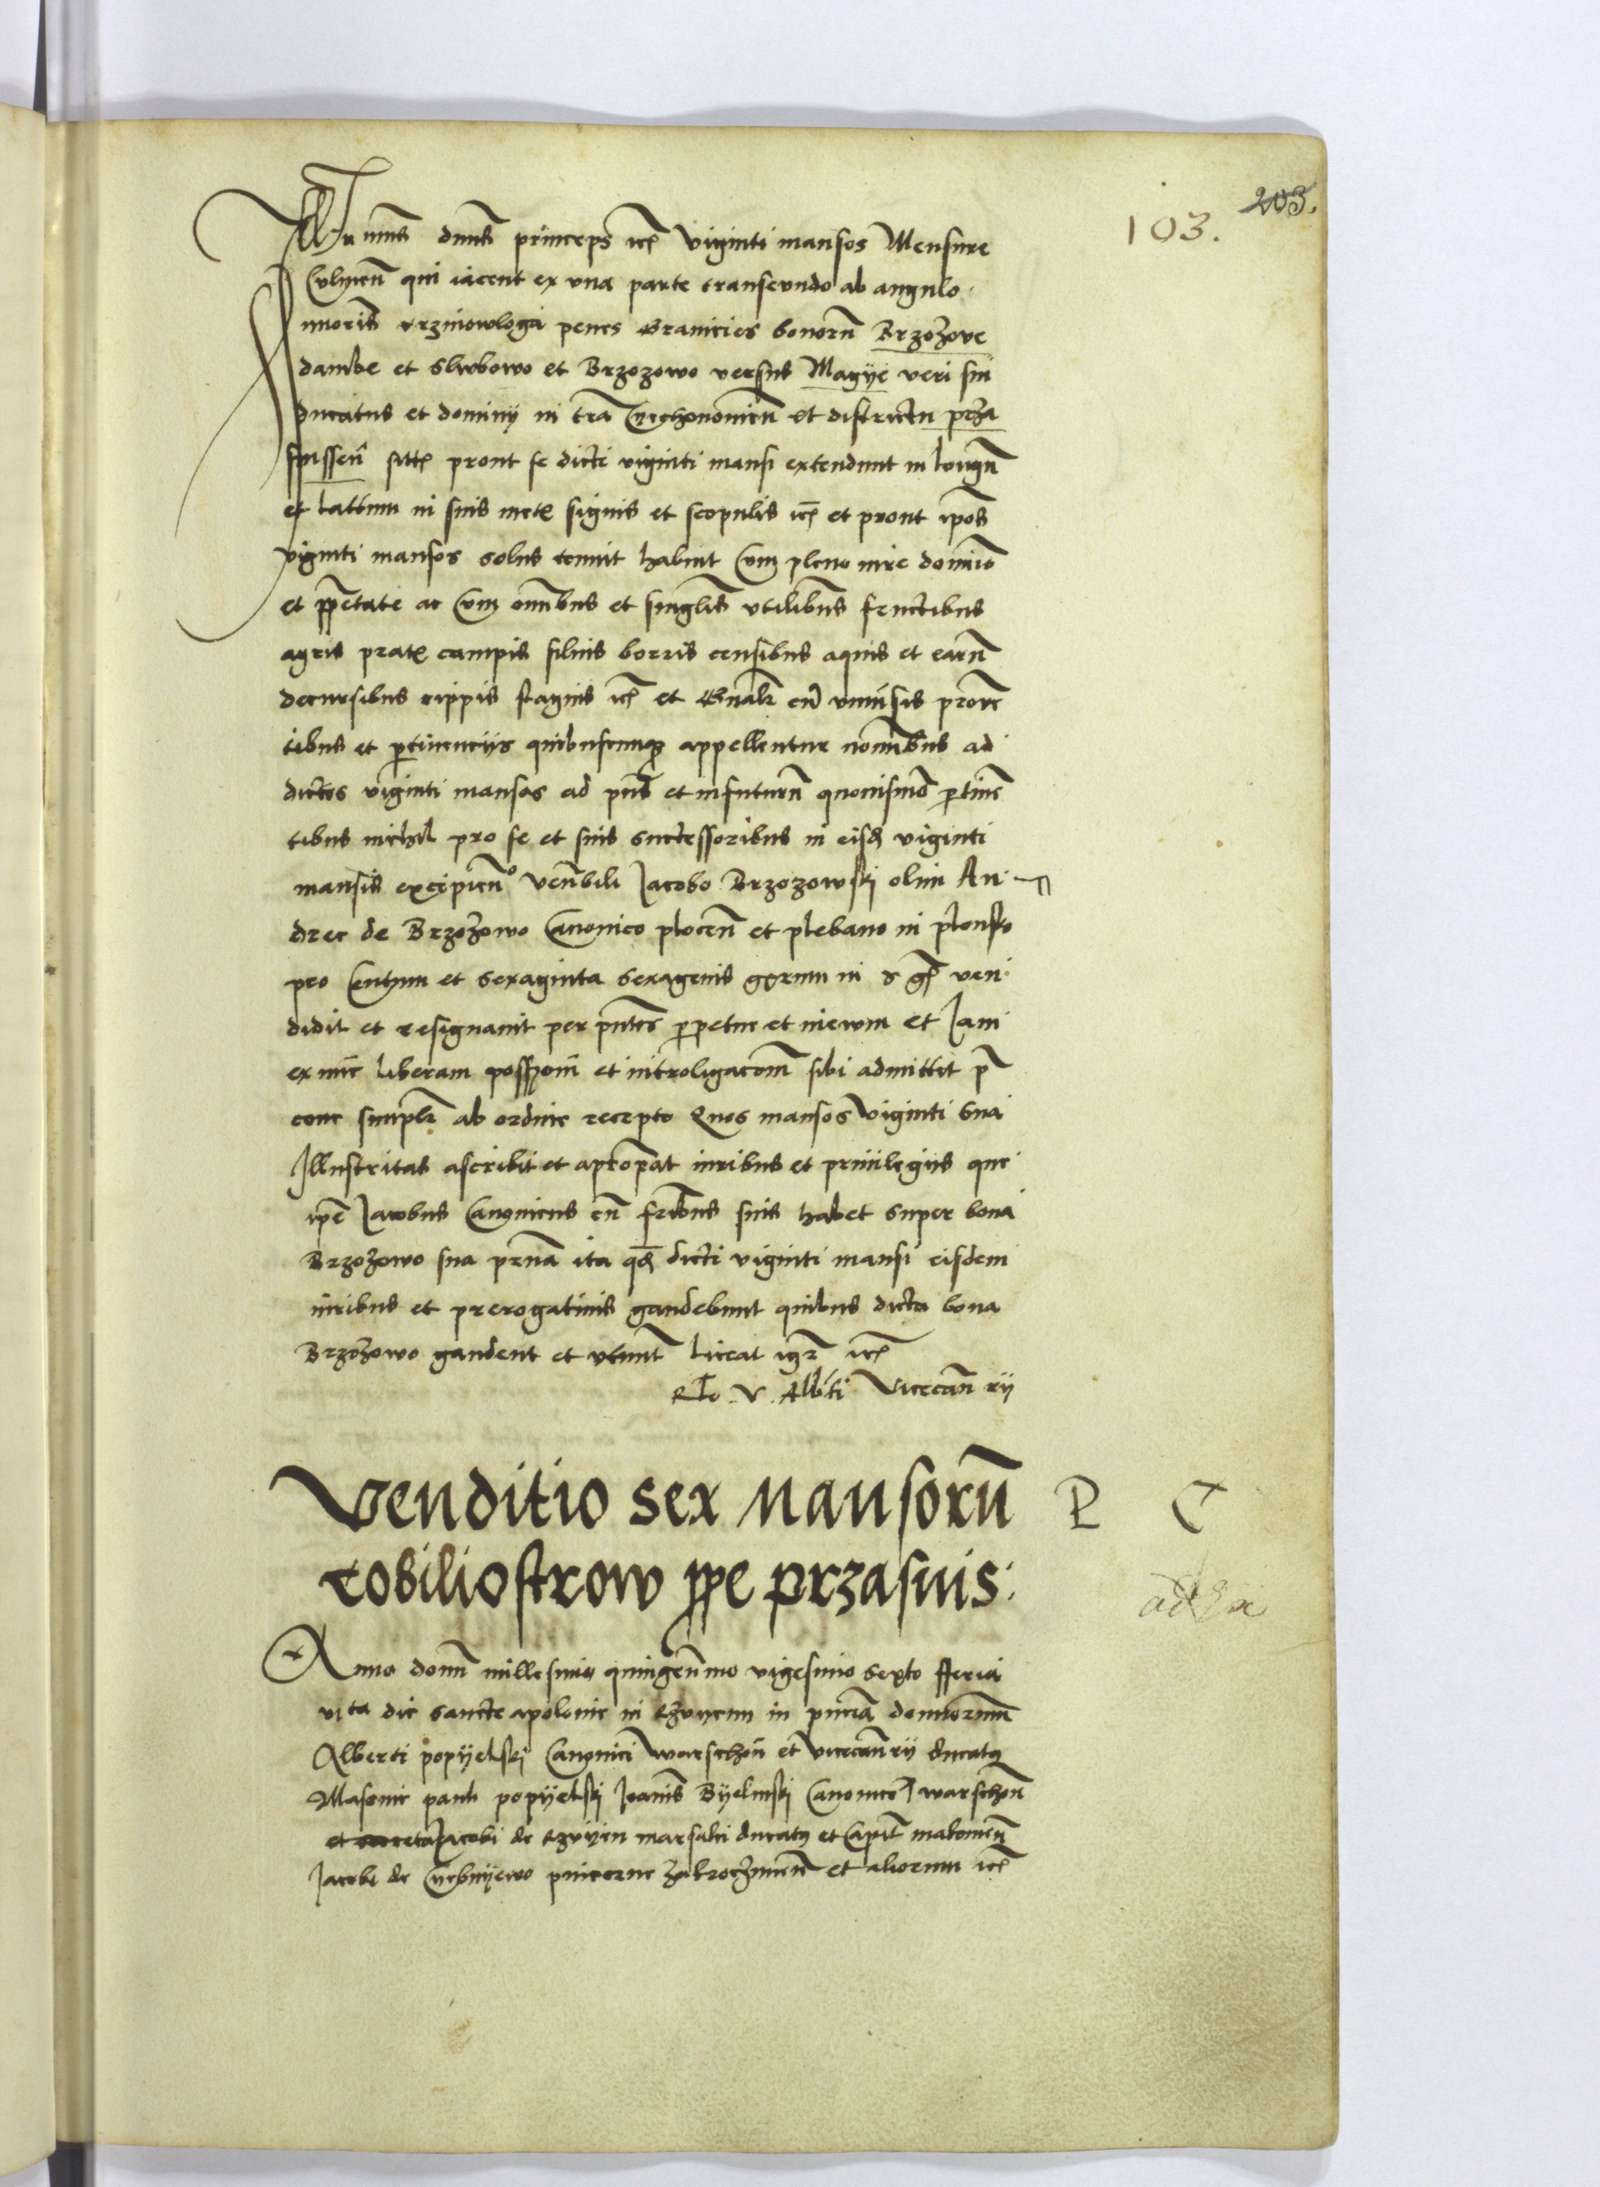 203.
103.
Illrmus dnus princeps etc viginti mansos Mensure
Culmen qui iacent ex una parte transeundo ab angulo
moris krzniowloga penes Granicies bonorum Brzozowe
dambe et Slubowo et Brzozowo versus Magije veri sui
ducatus et dominy in tra Cyechonomien et districtu prza
snissen sitos prout se dicti viginti mansi extendunt in longu
et lattum in suis metis signis et scopulis etc et prout ipos
viginti mansos solus tenuit habuit Cum pleno iure dominio
et ppetate ac Cum omnibus et singulis utilibus fructibus
agris pratis campis siluis borris censibus aquis et earum
decursibus rippis stagnis etc et Gnalr cu uniuersis proue
tibus et pertinenciis quibuscumque appellentur nominibus ad
dictos viginti mansos ad pns et infuturum quouismodo ptinen
tibus nichil pro se et suis successoribus in eisdem viginti
mansis excipiendo Venbili Jacobo Brzozowski olim An
dree de Brzozowo Canonico plocen et plebano in plonsko
pro Centum et sexaginta sexagenis grorum in d gr ven
didit et resignauit per pntes perpetue et in ewm et Jam
ex nunc liberam possessionem et introligacom sibi admittit p
cone simplr ab ordine recepto Quos mansos viginti sua
Illustritas ascribit et apropat iuribus et priuilegiis que
ipe Jacobus Canonicus cu fribus suis habet super bona
Brzozowo sua prna ita quod dicti viginti mansi eisdem
iuribus et prerogatiuis gaudebunt quibus dicta bona
Brzozowo gaudent et utunt liceat igr etc
Rlo V. Alberti Vicecan rij
Venditio sex Mansorum
cobiliostrow ppe przasnis
P C
Anno domi millesimo quingenmo vigesimo sexto fferia
vi ta die sancte apolonie in in pncia domnorum
Alberti popyelski Canonici Warschon et vicecanrij ducatus
Masouie pauli popyelski Joannis Byelinski Canonicor warschon
Jacobi de marsalci ducatus et Capit makouien
Jacobi de pincerne zakrocimien et aliorum etc